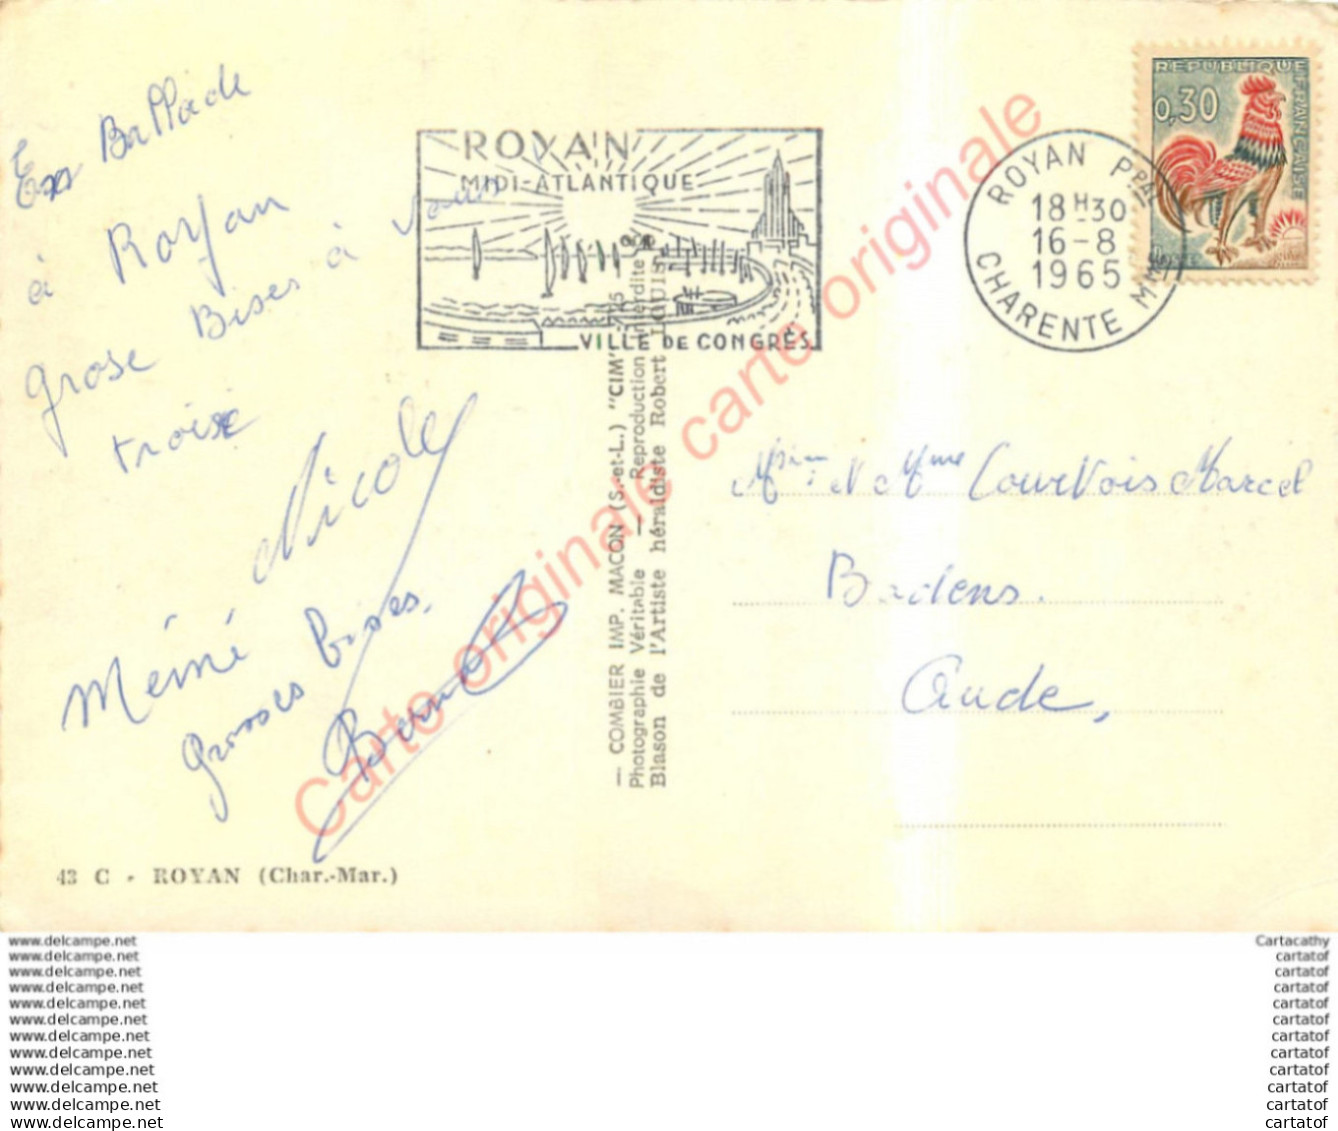 En Ballade
à Royan
grose Bises à vous
trois
Nicole
Mémé
grosses bises.
Bernard
43 C - ROYAN (Char.-Mar.)
ROYAN
MIDI-ATLANTIQUE
VILLE DE CONGRÈS
— COMBIER IMP. MACON (S.-et-L.) "CIM"
Photographie Véritable — Reproduction interdite
Blason de l'Artiste héraldiste Robert LOUIS
ROYAN PPAL
18 H-30
16-8
1965
CHARENTE MME
REPUBLIQUE FRANÇAISE
0,30
Mme Courvois Marcel
Badens.
Aude,
Carte originale carte originale carte originale
www.delcampe.net
www.delcampe.net
www.delcampe.net
www.delcampe.net
www.delcampe.net
www.delcampe.net
www.delcampe.net
www.delcampe.net
www.delcampe.net
www.delcampe.net
www.delcampe.net
www.delcampe.net
Cartacathy
cartatof
cartatof
cartatof
cartatof
cartatof
cartatof
cartatof
cartatof
cartatof
cartatof
cartatof